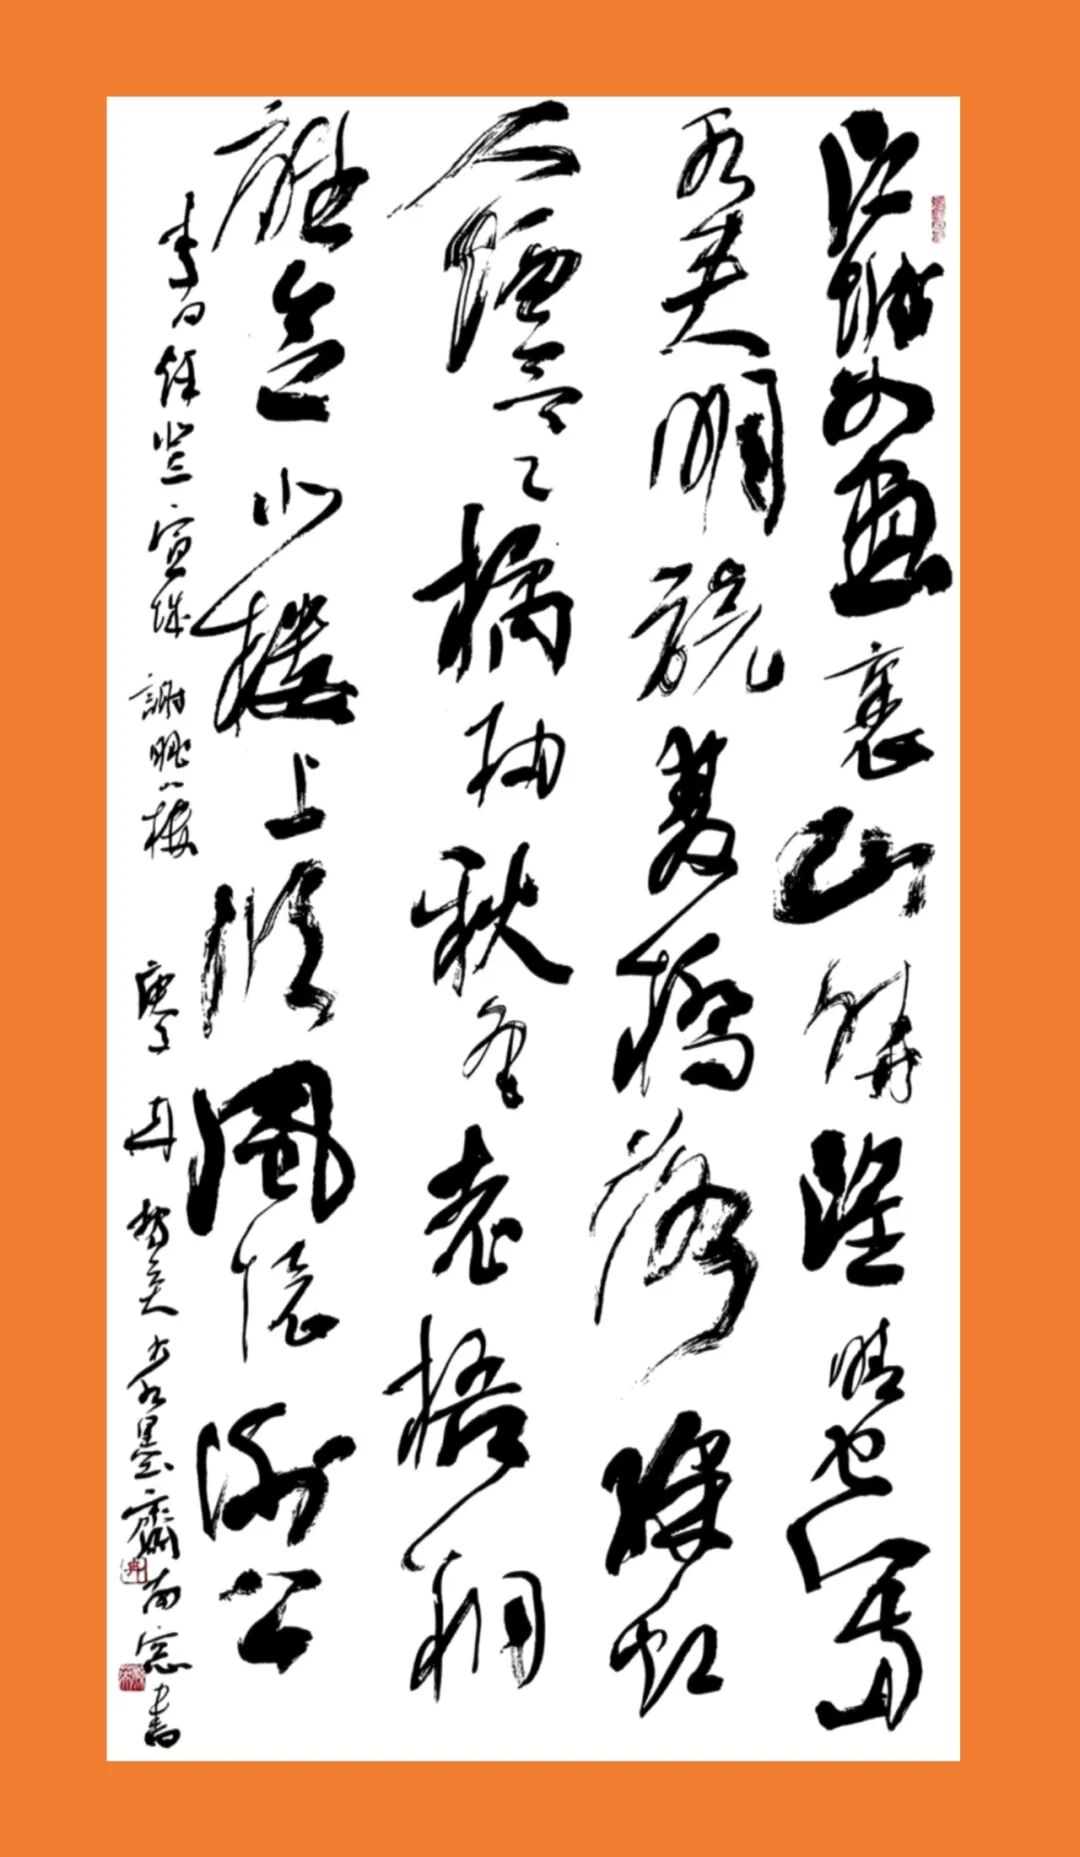 江城如畫裏山曉望晴空兩
水夾明鏡雙橋落彩虹
人煙寒橘柚秋色老梧桐
誰念北樓上臨風懷謝公
李白秋登宣城謝朓北樓 庚子 墨齋南窗書